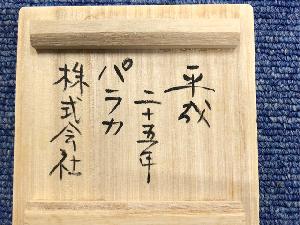 平成
二十五年
パラカ
株式会社